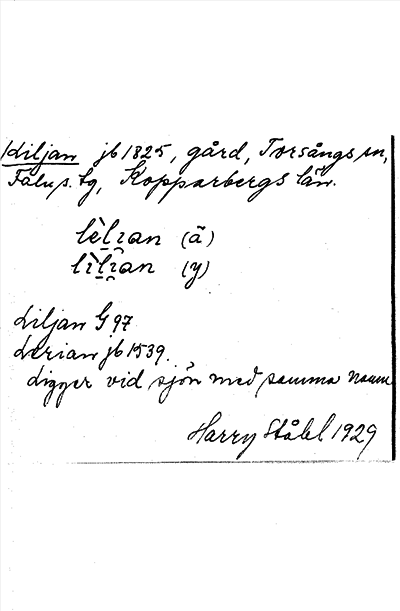 Liljan jb 1825, gård, Torsångs sn,
Falu s. tg, Kopparbergs län.
lèlian (ä)
lìlian (y)
Liljan G 97
Lerian jb 1539.
Ligger vid sjön med samma namn
Harry Ståhl 1929